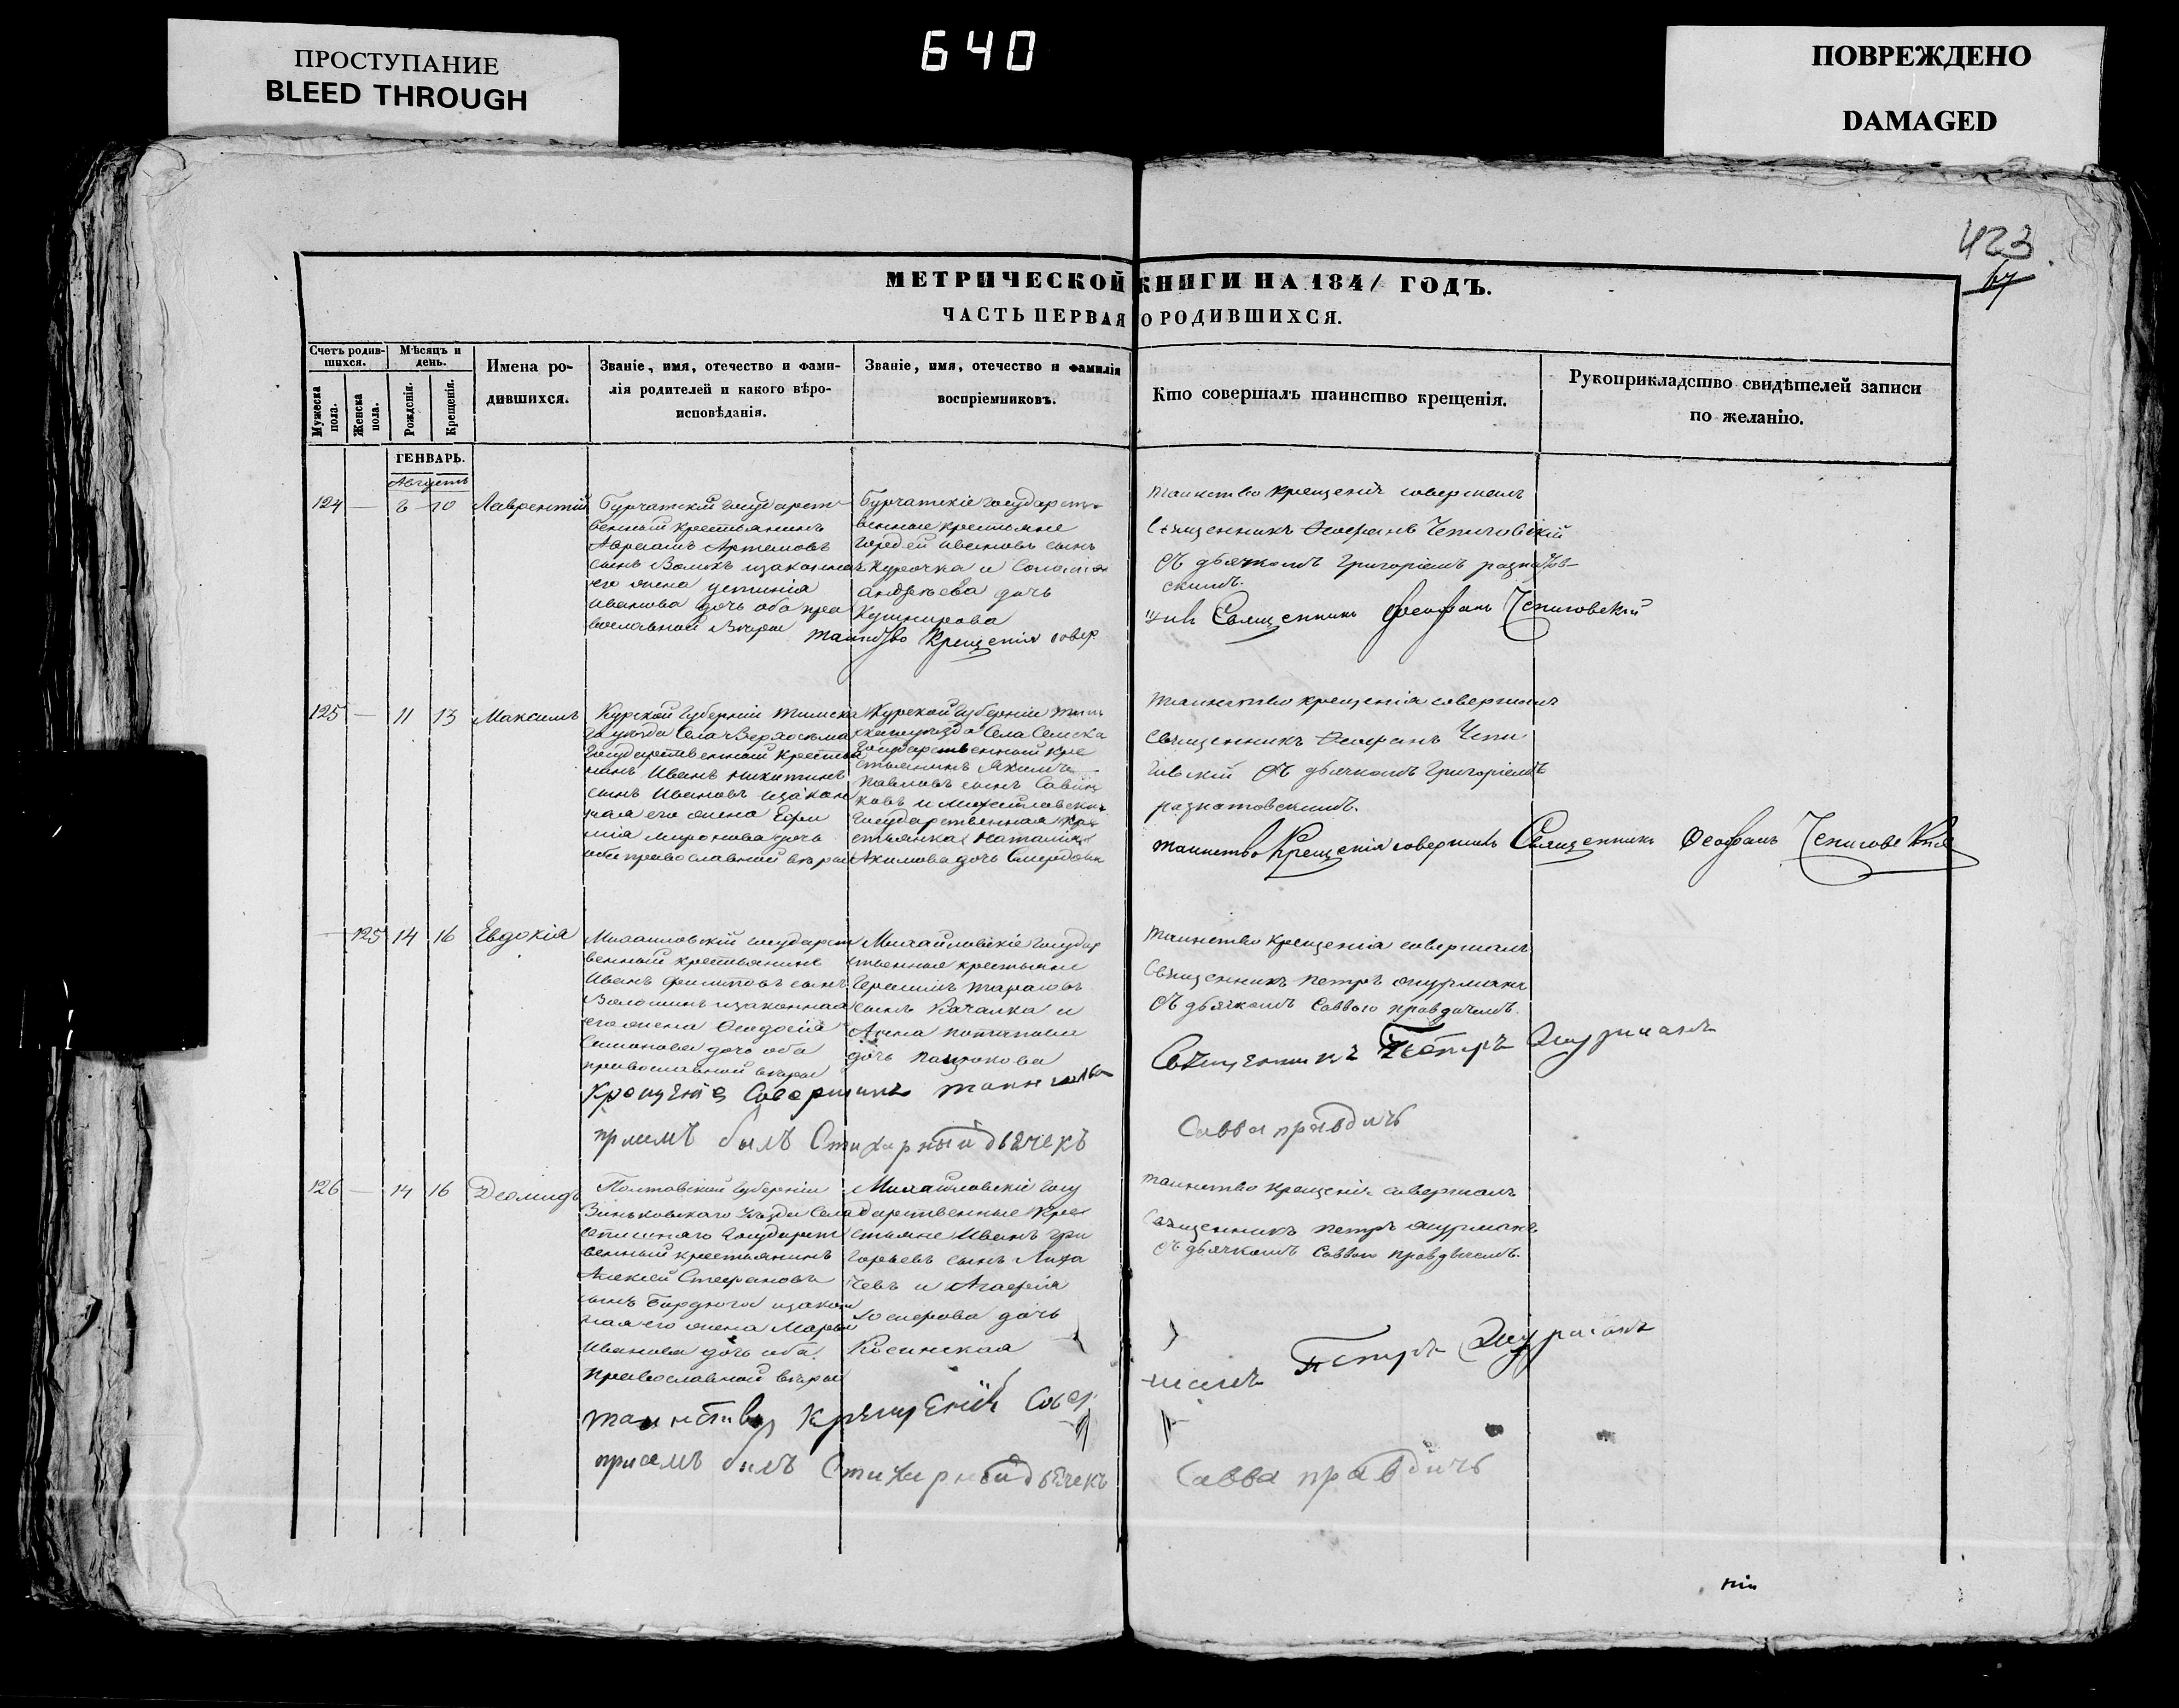 ПРОСТУПАНИЕ
BLEED THROUGH
640
ПОВРЕЖДЕНО
DAMAGED
423
67
МЕТРИЧЕСКОЙ КНИГИ НА 1841 ГОДЪ.
ЧАСТЬ ПЕРВАЯ О РОДИВШИХСЯ.
Счетъ родив-
шихся.
Мужеска
пола.
Женска
пола.
Мѣсяцъ и
день.
Рожденія.
Крещенія.
Имена ро-
дившихся.
Званіе, имя, отечество и фами-
лія родителей и какого вѣро-
исповѣданія.
Званіе, имя, отечество и фамилія
воспріемниковъ.
Кто совершалъ таинство крещенія.
Рукоприкладство свидѣтелей записи
по желанію.
ГЕНВАРЬ.
Августъ
124 — 6 10 Лаврентій
Бурчатскій государст
венный крестьянинъ
Авраамъ Артемовъ
сынъ Волокъ изаконная
его жена устинія
иванова дочь оба пра
вославной вѣры
Бурчатскіе государст
венные крестьяне
гордей ивановъ сынъ
Курочка и
андреева дочь
Кушнирова
таинство Крещенія совер
таинство крещенія совершалъ
Священникъ Ѳеофанъ Чепиговскій
Съ дьячкомъ Григоріемъ разнатов-
скимъ.
шилъ Священникъ Феофанъ Чепиговскій
125 — 11 13 Максимъ
Курской губерніи тимска
го уезда Села Верхосейма
государственный крестья
нинъ Иванъ никитинъ
сынъ Ивановъ изакон
ная его жена Ефи
мія миронова дочь
оба православной вѣры
Курской губерніи тим
скаго уезда Села Семска
государственный кре
стьянинъ Якимъ
Павловъ сынъ
ковъ и михайловская
государственная кре
стьянка наталія
Акимова дочь
таинство крещенія совершалъ
Священникъ Ѳеофанъ Чепи
говскій Съ дьячкомъ Григоріемъ
разнатовскимъ.
таинство Крещенія совершилъ Священникъ Ѳеофанъ Чепиговскій
— 125 14 16 Евдокія
Михайловскій государст
венный крестьянинъ
Иванъ филиповъ сынъ
Волошинъ изаконная
его жена Ѳеодосія
Семонова дочь оба
православной вѣры
Михайловскіе государ
ственные крестьяне
Герасимъ тарасовъ
сынъ Качалка и
Анна потапова
дочь пацюкова
Крещенія Совершилъ таинство
примъ былъ Стихарный дьячекъ
таинство крещенія совершалъ
Священникъ петръ шурманъ
Съ дьячкомъ Саввою правдичемъ.
Священникъ Петръ Шурманъ
Савва правдичъ
126 — 14 16 Деомидъ
Полтавской губерніи
Зиньковскаго уѣзда Села
государст
венный крестьянинъ
Алексей Стефановъ
сынъ изакон
ная его жена Марья
Иванова дочь оба
православной вѣры
Михайловскіе госу
дарственные кре
стьяне Иванъ гри
горьевъ сынъ Лиха
чевъ и Агафія
дочь
Косинская
таинство крещенія Совер
приемъ былъ Стихарный дьячекъ
таинство крещенія совершалъ
Священникъ петръ шурманъ
съ дьячкомъ Саввою правдичемъ.
шилъ Петръ Шурманъ
Савва правдичъ